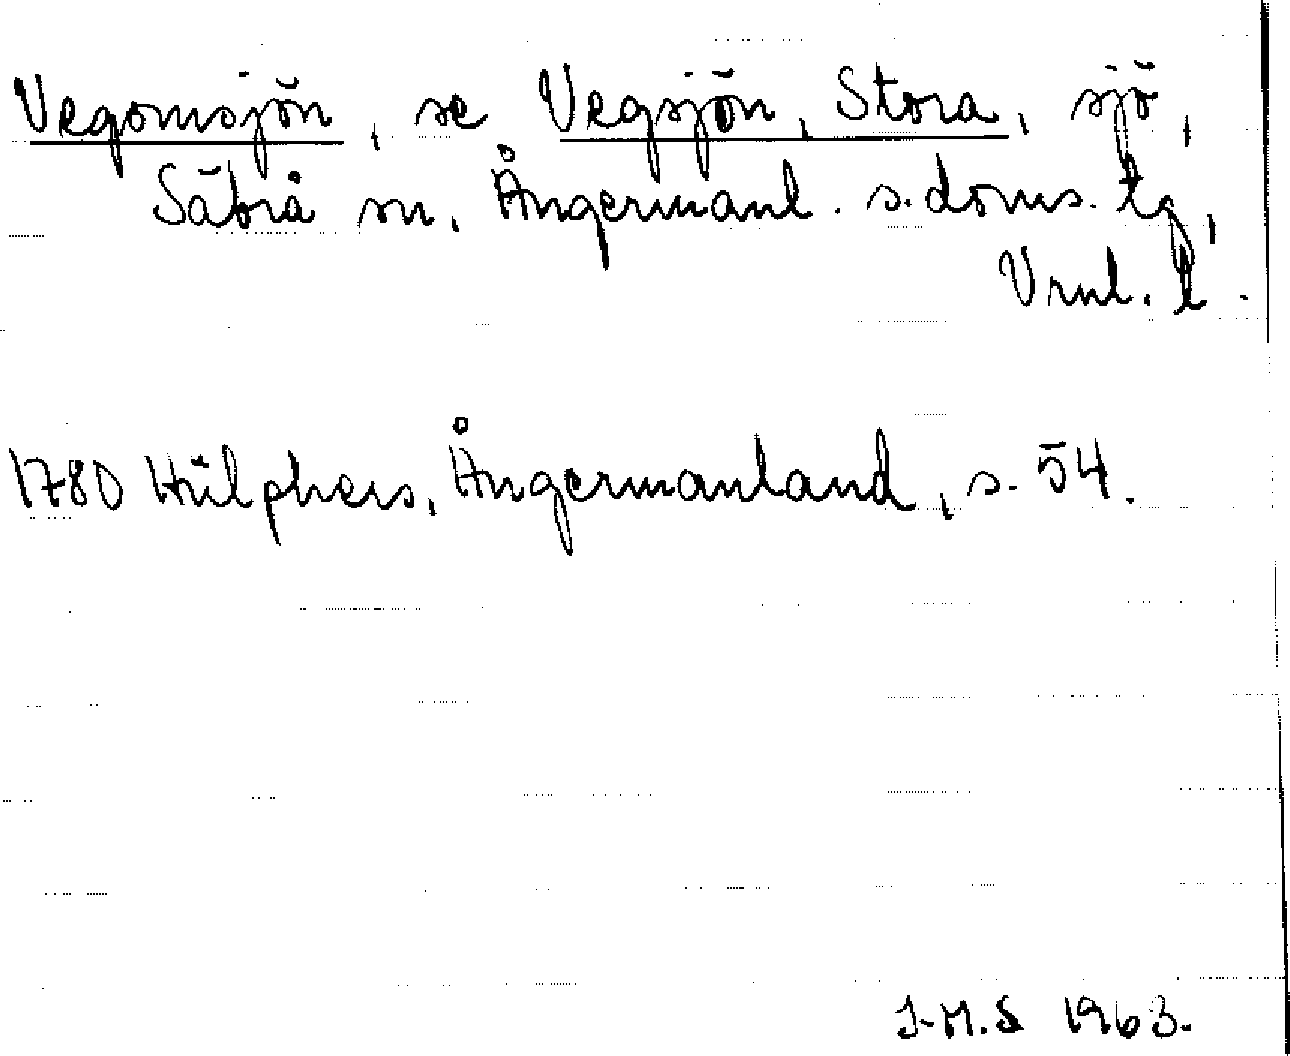 Vegomsjön, se Vegsjön, Stora, sjö,
Säbrå sn, Ångermanl. s. doms. tg,
Vrnl. l.
1780 Hülphers, Ångermanland, s. 54.
I-M.S 1963.